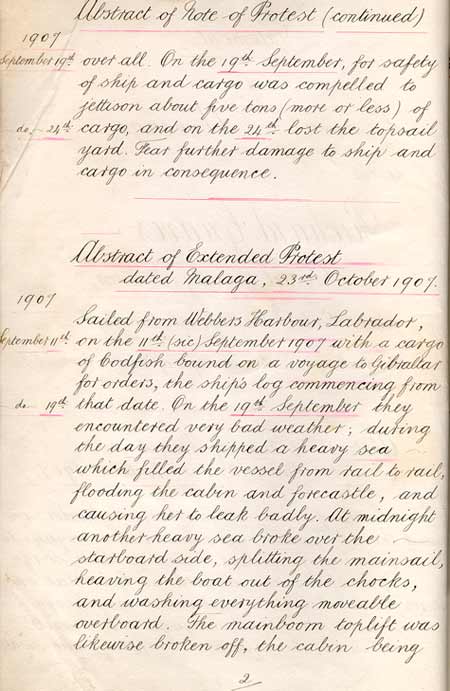 Abstract of Note of Protest (continued)
1907
September 19th over all. On the 19th September, for safety
of ship and cargo was compelled to
jettison about five tons (more or less) of
do - 24th cargo, and on the 24th lost the topsail
yard. Fear further damage to ship and
cargo in consequence.
Abstract of Extended Protest
dated Malaga, 23rd October 1907.
1907
Sailed from Webbers Harbour, Labrador,
September 11th on the 11th (sic) September 1907 with a cargo
of Codfish bound on a voyage to Gibraltar
for orders, the ship's log commencing from
do - 19th that date. On the 19th September they
encountered very bad weather; during
the day they shipped a heavy sea
which filled the vessel from rail to rail,
flooding the cabin and forecastle, and
causing her to leak badly. At midnight
another heavy sea broke over the
starboard side, splitting the mainsail,
heaving the boat out of the chocks,
and washing everything moveable
overboard. The mainboom toplift was
likewise broken off, the cabin being
2